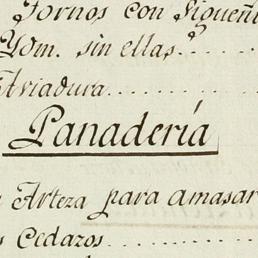 Tornos con Sigueñ
Ydm. sin ellas......
Aviadura..........
Panadería
Arteza para amasar
Cedazos..........